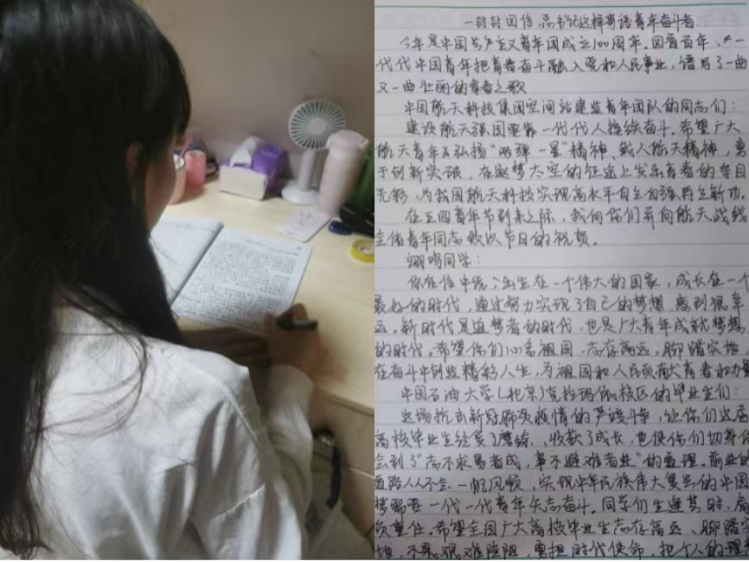 一封封回信,总书记这样寄语青年奋斗者
今年是中国共产主义青年团成立100周年。回首百年,一
代代中国青年把青春奋斗融入党和人民事业,谱写了一曲
又一曲壮丽的青春之歌
中国航天科技集团空间站建造青年团队的同志们:
建设航天强国要靠一代代人接续奋斗。希望广大
航天青年弘扬“两弹一星”精神、载人航天精神,勇
于创新突破,在逐梦太空的征途上发出青春的夺目
光彩,为我国航天科技实现高水平自立自强再立新功。
在五四青年节到来之际,我向你们并向航天战线
全体青年同志致以节日的祝贺。
同学:
你在信中说,出生在一个伟大的国家,成长在一个
最好的时代,通过努力实现了自己的梦想,感到很幸
运。新时代是追梦者的时代,也是广大青年成就梦想
的时代。希望你们心系祖国,志存高远,脚踏实地,
在奋斗中创造精彩人生,为祖国和人民贡献青春和力量
中国石油大学(北京)克拉玛依校区的毕业生们:
这场抗击新冠肺炎疫情的严峻斗争,让你们这届
高校毕业生经受了磨练、收获了成长,也使你们切身体
会到了“志不求易者成,事不避难者进”的道理。前进的
道路从不会一帆风顺,实现中华民族伟大复兴的中国
梦需要一代一代青年矢志奋斗。同学们生逢其时、肩
负重任。希望全国广大高校毕业生志存高远、脚踏实
地,不畏艰难险阻,勇担时代使命,把个人的理想